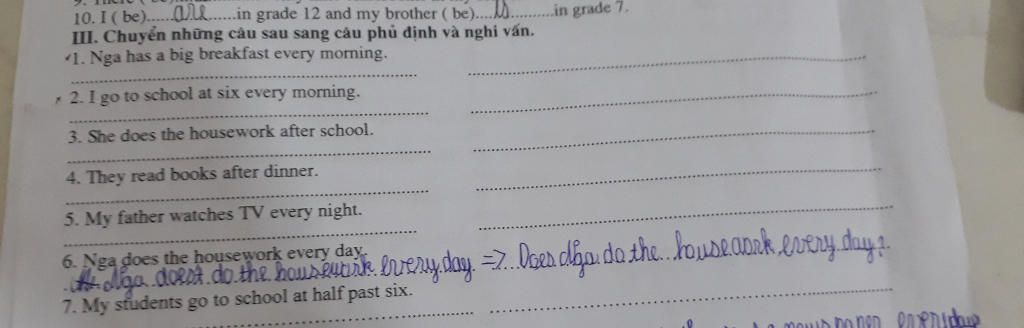 10. I ( be)......are......in grade 12 and my brother ( be)....is..........in grade 7.
III. Chuyển những câu sau sang câu phủ định và nghi vấn.
1. Nga has a big breakfast every morning.
2. I go to school at six every morning.
3. She does the housework after school.
4. They read books after dinner.
5. My father watches TV every night.
6. Nga does the housework every day.
Nga doest do the housework every day. => Does Nga do the housework every day?
7. My students go to school at half past six.
newspaper everyday